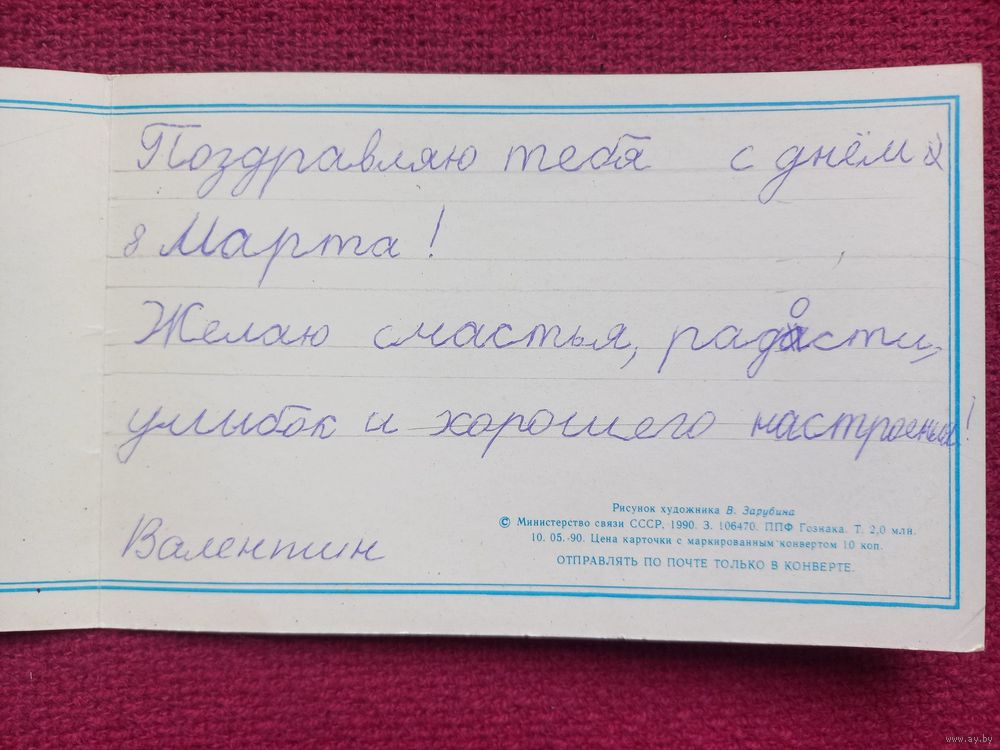 Поздравляю тебя с днём
8 Марта!
Желаю счастья, радости,
улыбок и хорошего настроения!
Валентин
Рисунок художника В. Зарубина
© Министерство связи СССР, 1990. З. 106470. ППФ Гознака. Т. 2,0 млн.
10. 05.-90. Цена карточки с маркированным конвертом 10 коп.
ОТПРАВЛЯТЬ ПО ПОЧТЕ ТОЛЬКО В КОНВЕРТЕ.
www.ay.by